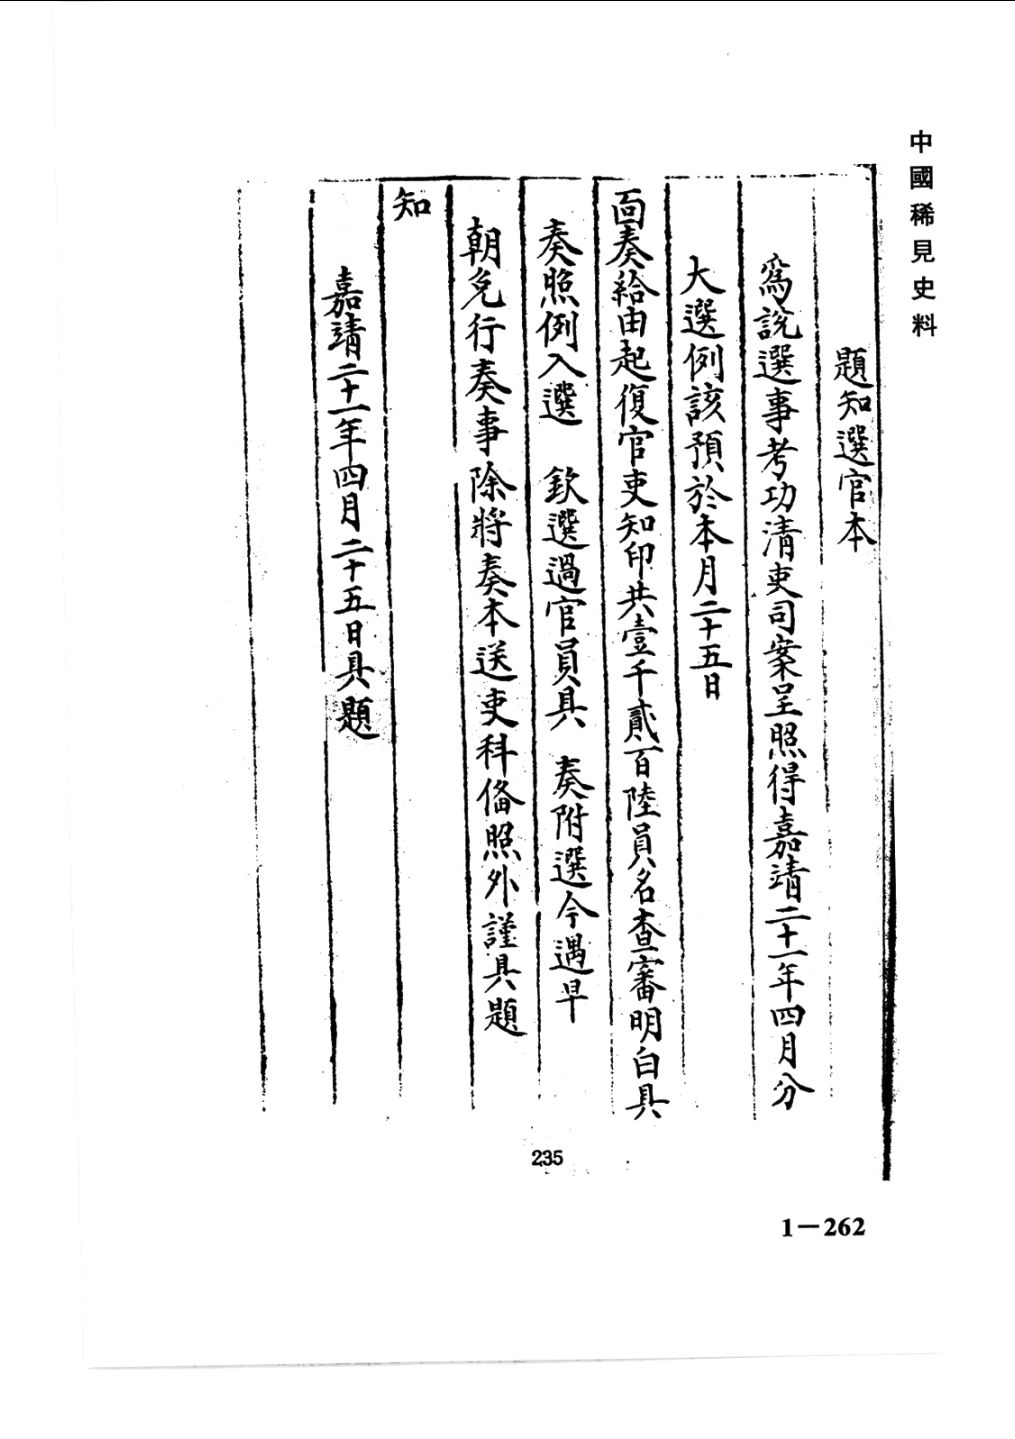 中國稀見史料
題知選官本
爲說選事考功清吏司案呈照得嘉靖二十一年四月分
大選例該預於本月二十五日
面奏給由起復官吏知印共壹千貳百陸員名查審明白具
奏照例入選 欽選過官員具 奏附選今遇早
朝免行奏事除將奏本送吏科俻照外謹具題
知
嘉靖二十一年四月二十五日具題
235
1－262